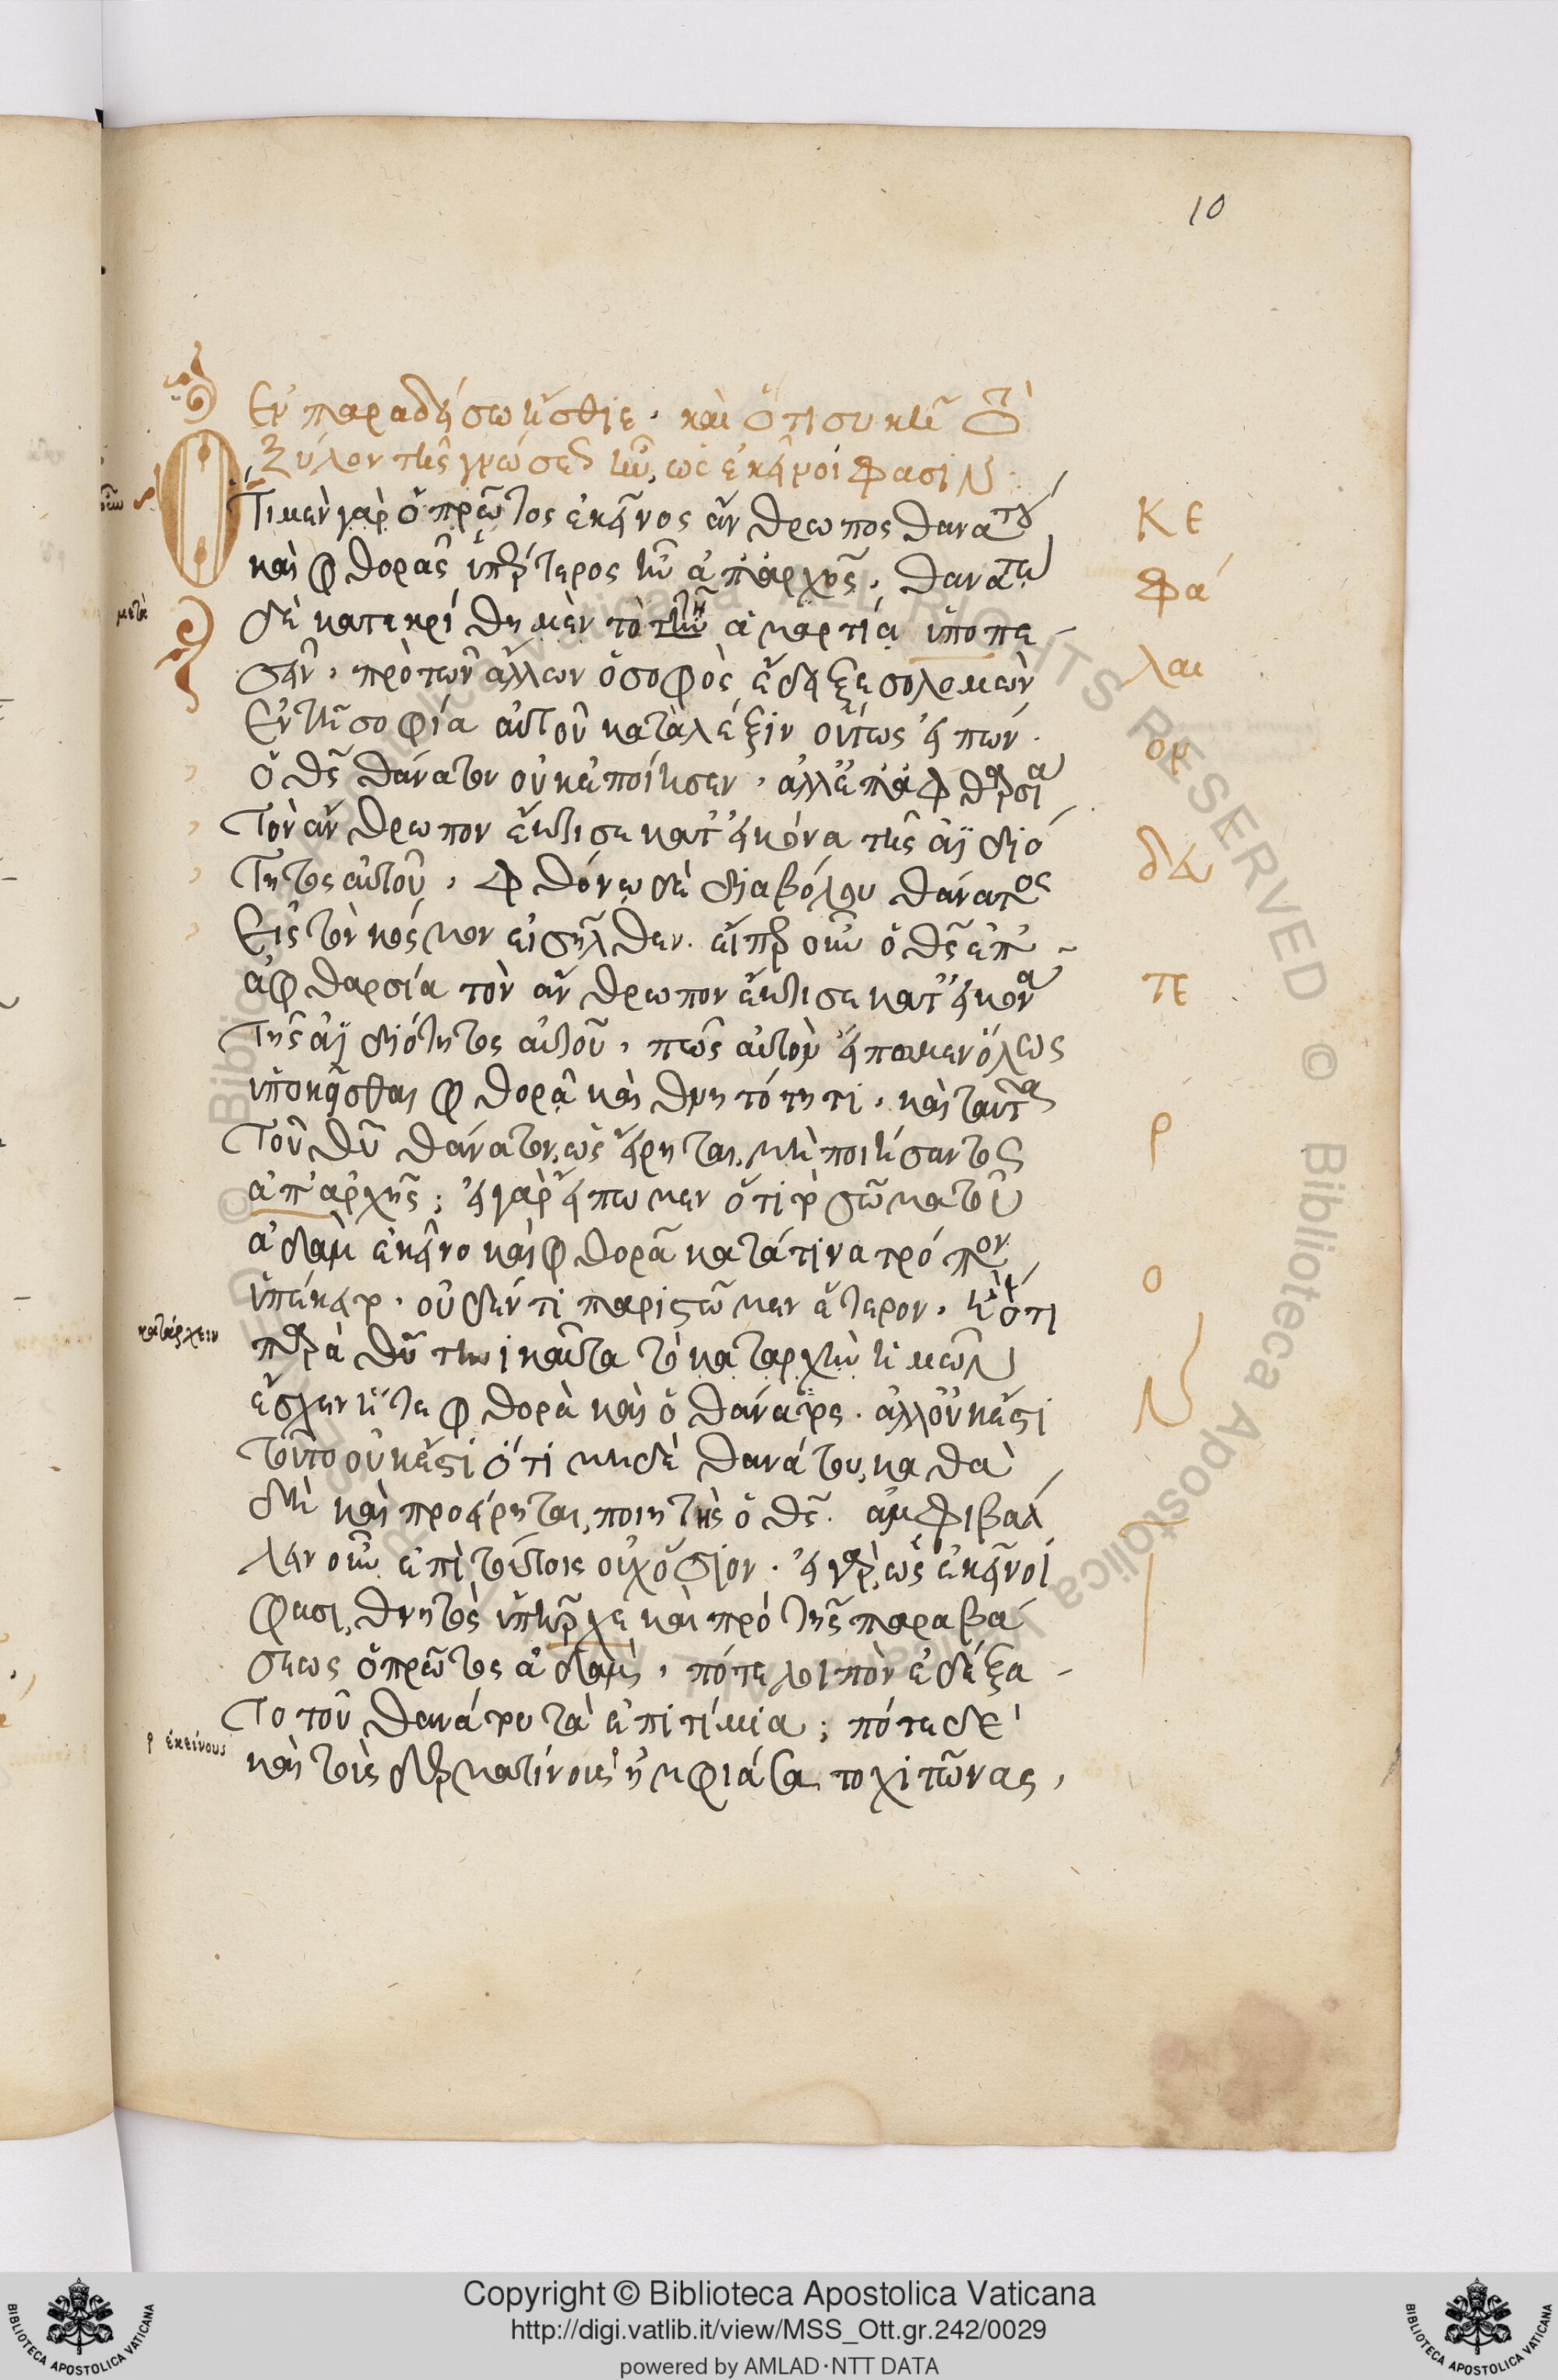 10
Ἐν παραδείσω ἤσθιε, καὶ ὅτι συκῆ τὸ
ξύλον τῆς γνώσεως ἦν, ὡς ἐκεῖνοί φασιν.
Ὅτι μὲν γὰρ ὁ πρῶτος ἐκεῖνος ἄνθρωπος θανάτου
καὶ φθορᾶς ὑπέρτερος ἦν ἀπαρχῆς, θανάτω
δὲ κατεκρίθη μὲν τὸ τῆ ἁμαρτία ὑποπε
σεῖν, πρὸ τῶν ἄλλων ὁ σοφὸς ἔδειξε σολομὼν
ἐν τῆ σοφία αὐτοῦ κατὰ λέξιν οὕτως εἰπών.
ὁ θς θάνατον οὐκ ἐποίησεν, ἀλλ' ἐπ' ἀφθαρσία
τὸν ἄνθρωπον ἔκτισε κατ' εἰκόνα τῆς ἀϊδιό
τητος αὐτοῦ, φθόνω δὲ διαβόλου θάνατος
εἰς τὸν κόσμον εἰσῆλθεν. εἴπερ οὖν ὁ θς ἐπ'
ἀφθαρσία τὸν ἄνθρωπον ἔκτισε κατ' εἰκόνα
τῆς ἀϊδιότητος αὐτοῦ, πῶς αὐτὸν εἴποιμεν ὅλως
ὑποκεῖσθαι φθορᾶ καὶ θνητότητι, καὶ ταῦτα
τοῦ θυ θάνατον, ὡς εἴρηται, μὴ ποιήσαντος
ἀπ' ἀρχῆς; εἰ γὰρ εἴπωμεν ὅτι τὸ σῶμα τοῦ
ἀδὰμ ἐκεῖνο καὶ φθορᾶ κατά τινα τρόπον
ὑπέκειτο, οὐδέν τι παριστῶμεν ἕτερον, ἢ ὅτι
παρὰ θυ τὴν καθ' ἡμῶν
ἔσχεν ἥ τε φθορὰ καὶ ὁ θάνατος. ἀλλ' οὐκ ἔστι
τοῦτο οὐκ ἔστι ὅτι μηδὲ θανάτου, καθὰ
δὴ καὶ προείρηται, ποιητὴς ὁ θς. ἀμφιβάλ
λειν οὖν ἐπὶ τούτοις οὐχ ὅσιον. εἰ γὰρ, ὡς ἐκεῖνοί
φασι, θνητὸς ὑπῆρχε καὶ πρὸ τῆς παραβά
σεως ὁ πρῶτος ἀδὰμ, πότε λοιπὸν ἐδέξα
το τοῦ θανάτου τὰ ἐπιτίμια; πότε δὲ
καὶ τοὺς δερματίνους ἠμφιάσατο χιτῶνας,
μετὰ
κατάρχειν
ἐκείνους
ΚΕ
φά
λαι
ον
δεύ
τε
ρ
ο
ν